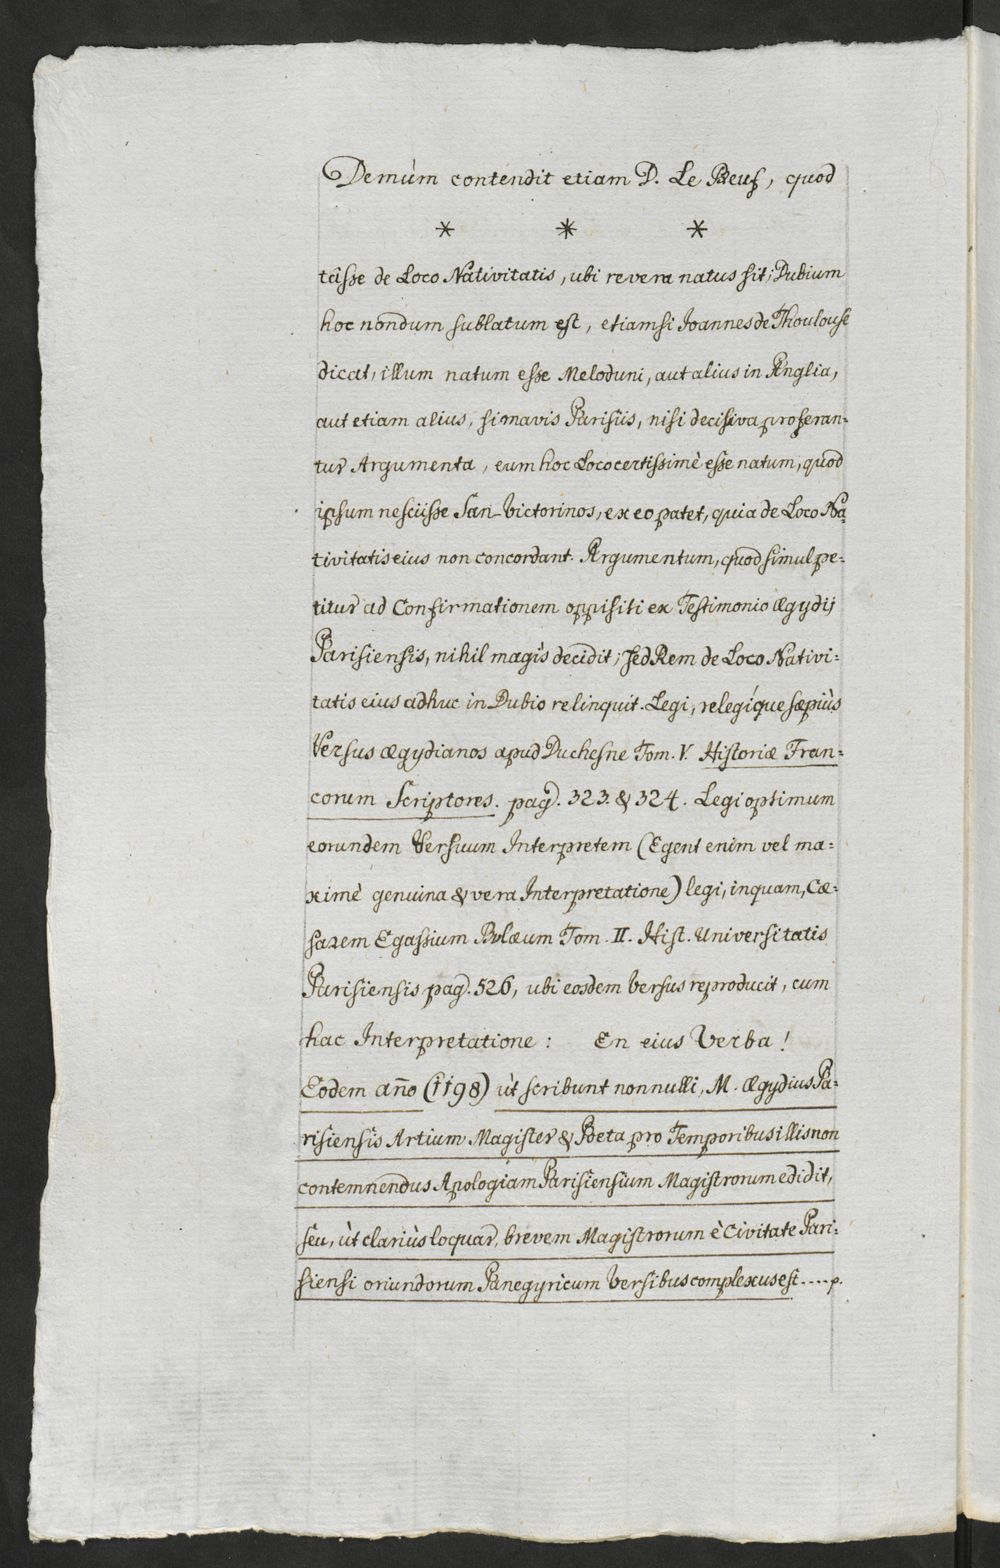 Demùm contendit etiam D. Le Beuf, quod
* * *
tâsse de Loco Nativitatis, ubi revera natus sit; Dubium
hoc nondum sublatum est, etiamsi Joannes de Thoulouse
dicat, illum natum esse Meloduni, aut alius in Anglia,
aut etiam alius, si mavis Parisiis, nisi decisiva proferan=
tur Argumenta, eum hoc Loco certissimè esse natum, quod
ipsum nesciisse San-Victorinos, ex eo patet, quia de Loco Na=
tivitatis eius non concordant. Argumentum, quod simul pe=
titur ad Confirmationem oppisiti ex Testimonio Ægydij
Parisiensis, nihil magis decidit; sed Rem de Loco Nativi=
tatis eius adhuc in Dubio relinquit. Legi, relegíque sæpiùs
Versus Ægydianos apud Duchesne Tom. V. Historiæ Fran=
corum Scriptores. pag. 323. & 324. Legi optimum
eorundem Versuum Interpretem (Egent enim vel ma=
ximè genuina & vera Interpretatione) legi, inquam, Cæ=
sarem Egassium Bulæum Tom. II. Hist. Universitatis
Parisiensis pag. 526, ubi eosdem versus reproducit, cum
hac Interpretatione: En eius Verba!
Eodem año (1198) ùt scribunt nonnulli, M. Ægydius Pa=
risiensis Artium Magister & Poeta pro Temporibus illis non
contemnendus Apologiam Parisiensium Magistrorum edidit,
seu, ùt clariùs loquar, brevem Magistrorum è Civitate Pari=
siensi oriundorum Panegyricum Versibus complexus est.....p.